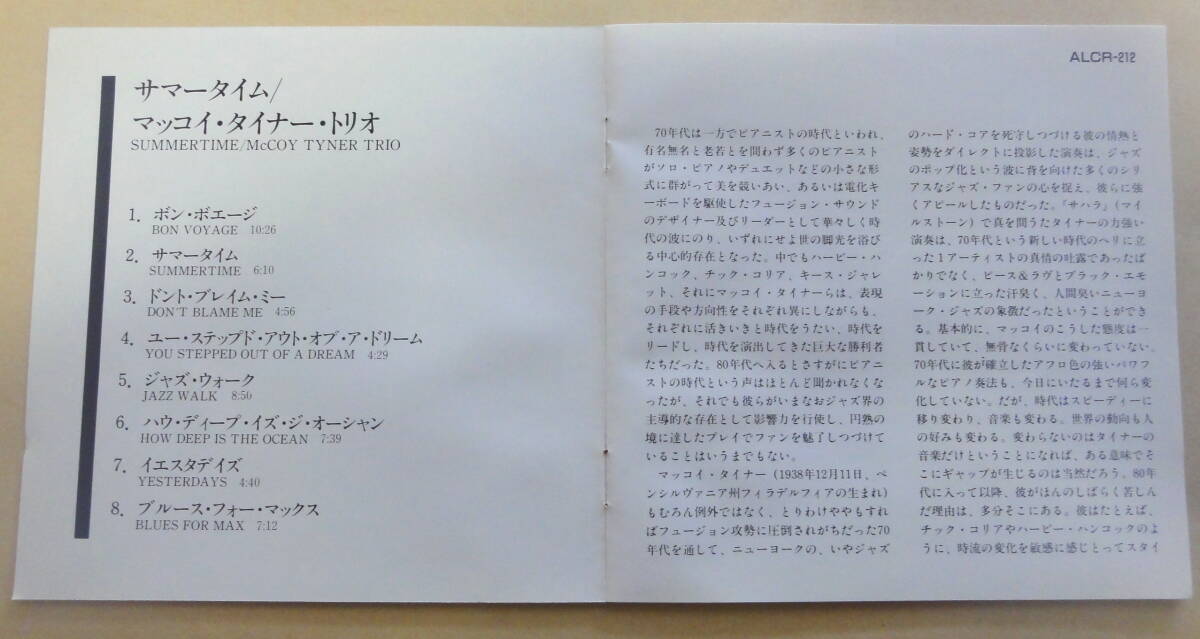 サマータイム/
マッコイ・タイナー・トリオ
SUMMERTIME/McCOY TYNER TRIO
1. ボン・ボエージ
BON VOYAGE 10:26
2. サマータイム
SUMMERTIME 6:10
3. ドント・ブレイム・ミー
DON'T BLAME ME 4:56
4. ユー・ステップド・アウト・オブ・ア・ドリーム
YOU STEPPED OUT OF A DREAM 4:29
5. ジャズ・ウォーク
JAZZ WALK 8:50
6. ハウ・ディープ・イズ・ジ・オーシャン
HOW DEEP IS THE OCEAN 7:39
7. イエスタデイズ
YESTERDAYS 4:40
8. ブルース・フォー・マックス
BLUES FOR MAX 7:12
ALCR-212
70年代は一方でピアニストの時代といわれ、
有名無名と老若とを問わず多くのピアニスト
がソロ・ピアノやデュエットなどの小さな形
式に群がって美を競いあい、あるいは電化キ
ーボードを駆使したフュージョン・サウンド
のデザイナー及びリーダーとして華々しく時
代の波にのり、いずれにせよ世の脚光を浴び
る中心的存在となった。中でもハービー・ハ
ンコック、チック・コリア、キース・ジャレ
ット、それにマッコイ・タイナーらは、表現
の手段や方向性をそれぞれ異にしながらも、
それぞれに活きいきと時代をうたい、時代を
リードし、時代を演出してきた巨大な勝利者
たちだった。80年代へ入るとさすがにピアニ
ストの時代という声はほとんど聞かれなくな
ったが、それでも彼らがいまなおジャズ界の
主導的な存在として影響力を行使し、円熟の
境に達したプレイでファンを魅了しつづけて
いることはいうまでもない。
マッコイ・タイナー(1938年12月11日、ペ
ンシルヴァニア州フィラデルフィアの生まれ)
もむろん例外ではなく、とりわけややもすれ
ばフュージョン攻勢に圧倒されがちだった70
年代を通して、ニューヨークの、いやジャズ
のハード・コアを死守しつづける彼の情熱と
姿勢をダイレクトに投影した演奏は、ジャズ
のポップ化という波に背を向けた多くのシリ
アスなジャズ・ファンの心を捉え、彼らに強
くアピールしたものだった。『サハラ』(マイ
ルストーン)で真を問うたタイナーの力強い
演奏は、70年代という新しい時代のヘリに立
った1アーティストの真情の吐露であったば
かりでなく、ピース&ラヴとブラック・エモ
ーションに立った汗臭く、人間臭いニューヨ
ーク・ジャズの象徴だったということができ
る。基本的に、マッコイのこうした態度は一
貫していて、無骨なくらいに変わっていない。
70年代に彼が確立したアフロ色の強いパワフ
ルなピアノ奏法も、今日にいたるまで何ら変
化していない。だが、時代はスピーディーに
移り変わり、音楽も変わる。世界の動向も人
の好みも変わる。変わらないのはタイナーの
音楽だけということになれば、ある意味でそ
こにギャップが生じるのは当然だろう。80年
代に入って以降、彼がほんのしばらく苦しん
だ理由は、多分そこにある。彼はたとえば、
チック・コリアやハービー・ハンコックのよ
うに、時流の変化を敏感に感じとってスタイ